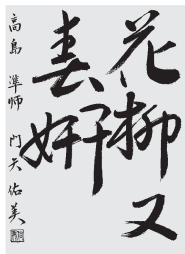 花柳又
春好
高島 準師 門矢佑美